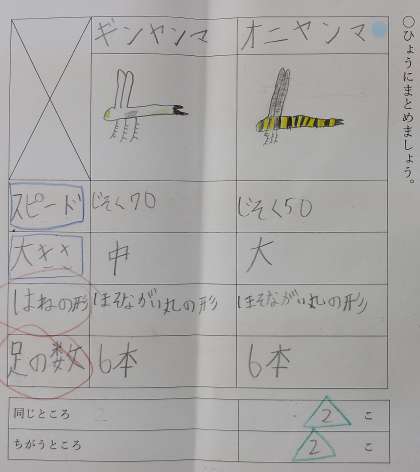 ○ひょうにまとめましょう。
ギンヤンマ オニヤンマ
スピード じそく70 じそく50
大キサ 中 大
はねの形 ほそながい丸の形 ほそながい丸の形
足の数 6本 6本
同じところ 2 こ
ちがうところ 2 こ